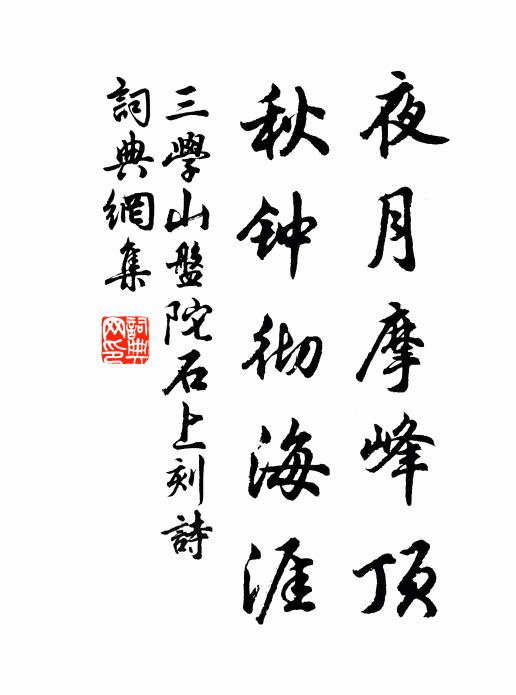 夜月摩峰顶
秋钟彻海涯
三學山盤陀石上刻詩
詞典網集
詞典网印